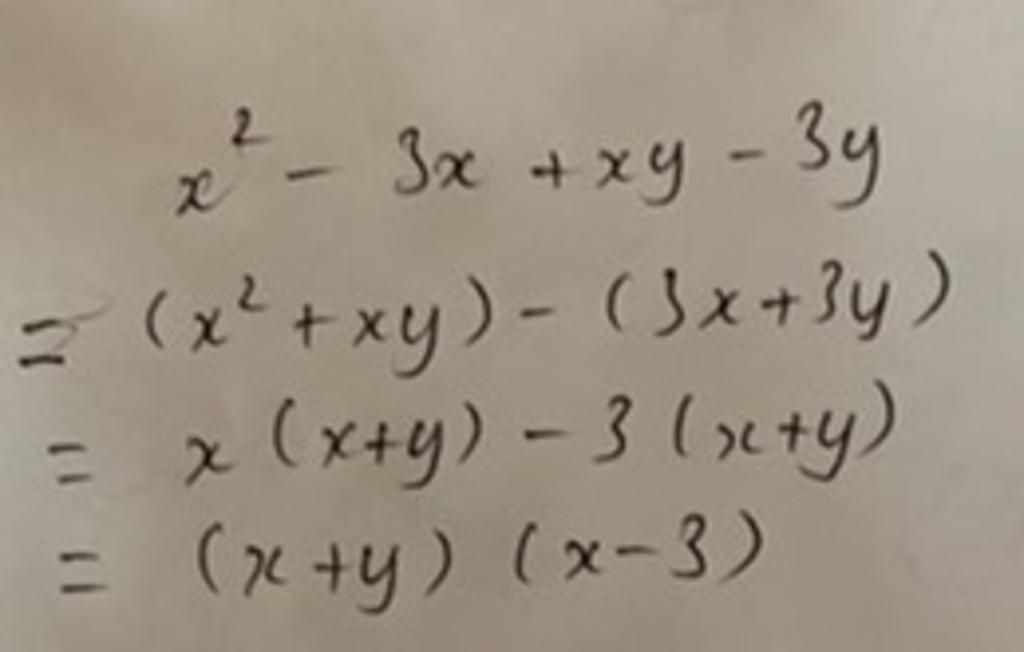 x² - 3x + xy - 3y
= (x² + xy) - (3x + 3y)
= x (x+y) - 3 (x+y)
= (x+y) (x-3)